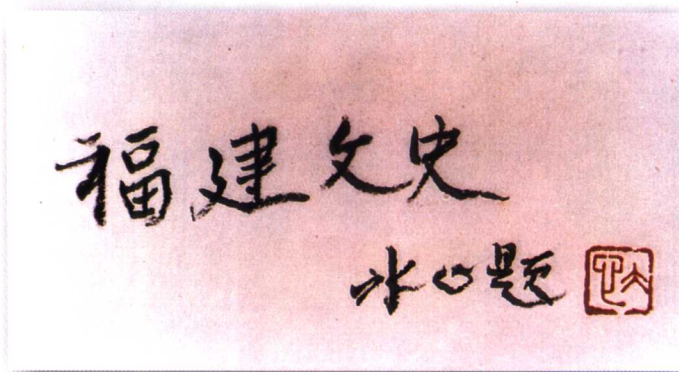 福建文史
冰心题